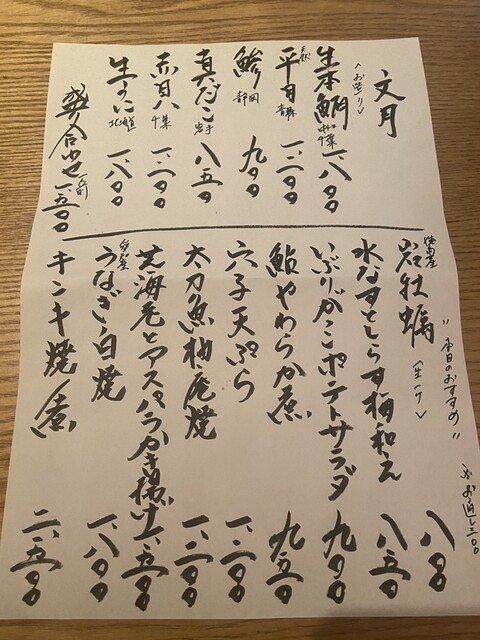 文月
〈お造り〉
生本鮪 千葉 一、八〇〇
天然 平目 青森 一、二〇〇
鯵 静岡 九〇〇
真だこ 岩手 八五〇
赤貝 千葉 一、二〇〇
生うに 北海道 一、八〇〇
盛り合わせ 一人前 一、五〇〇
お通し三〇〇
〃本日のおすすめ〃
岩牡蠣 〈生一ケ〉 八〇〇
水なすとしらす梅和え 八五〇
いぶりがっこポテトサラダ 九〇〇
鮎やわらか煮 九五〇
穴子天ぷら 一、二〇〇
太刀魚柚庵焼 一、二〇〇
芝海老とアスパラかき揚 一、五〇〇
愛知産 うなぎ白焼 一、八〇〇
キンキ焼 煮 二、五〇〇